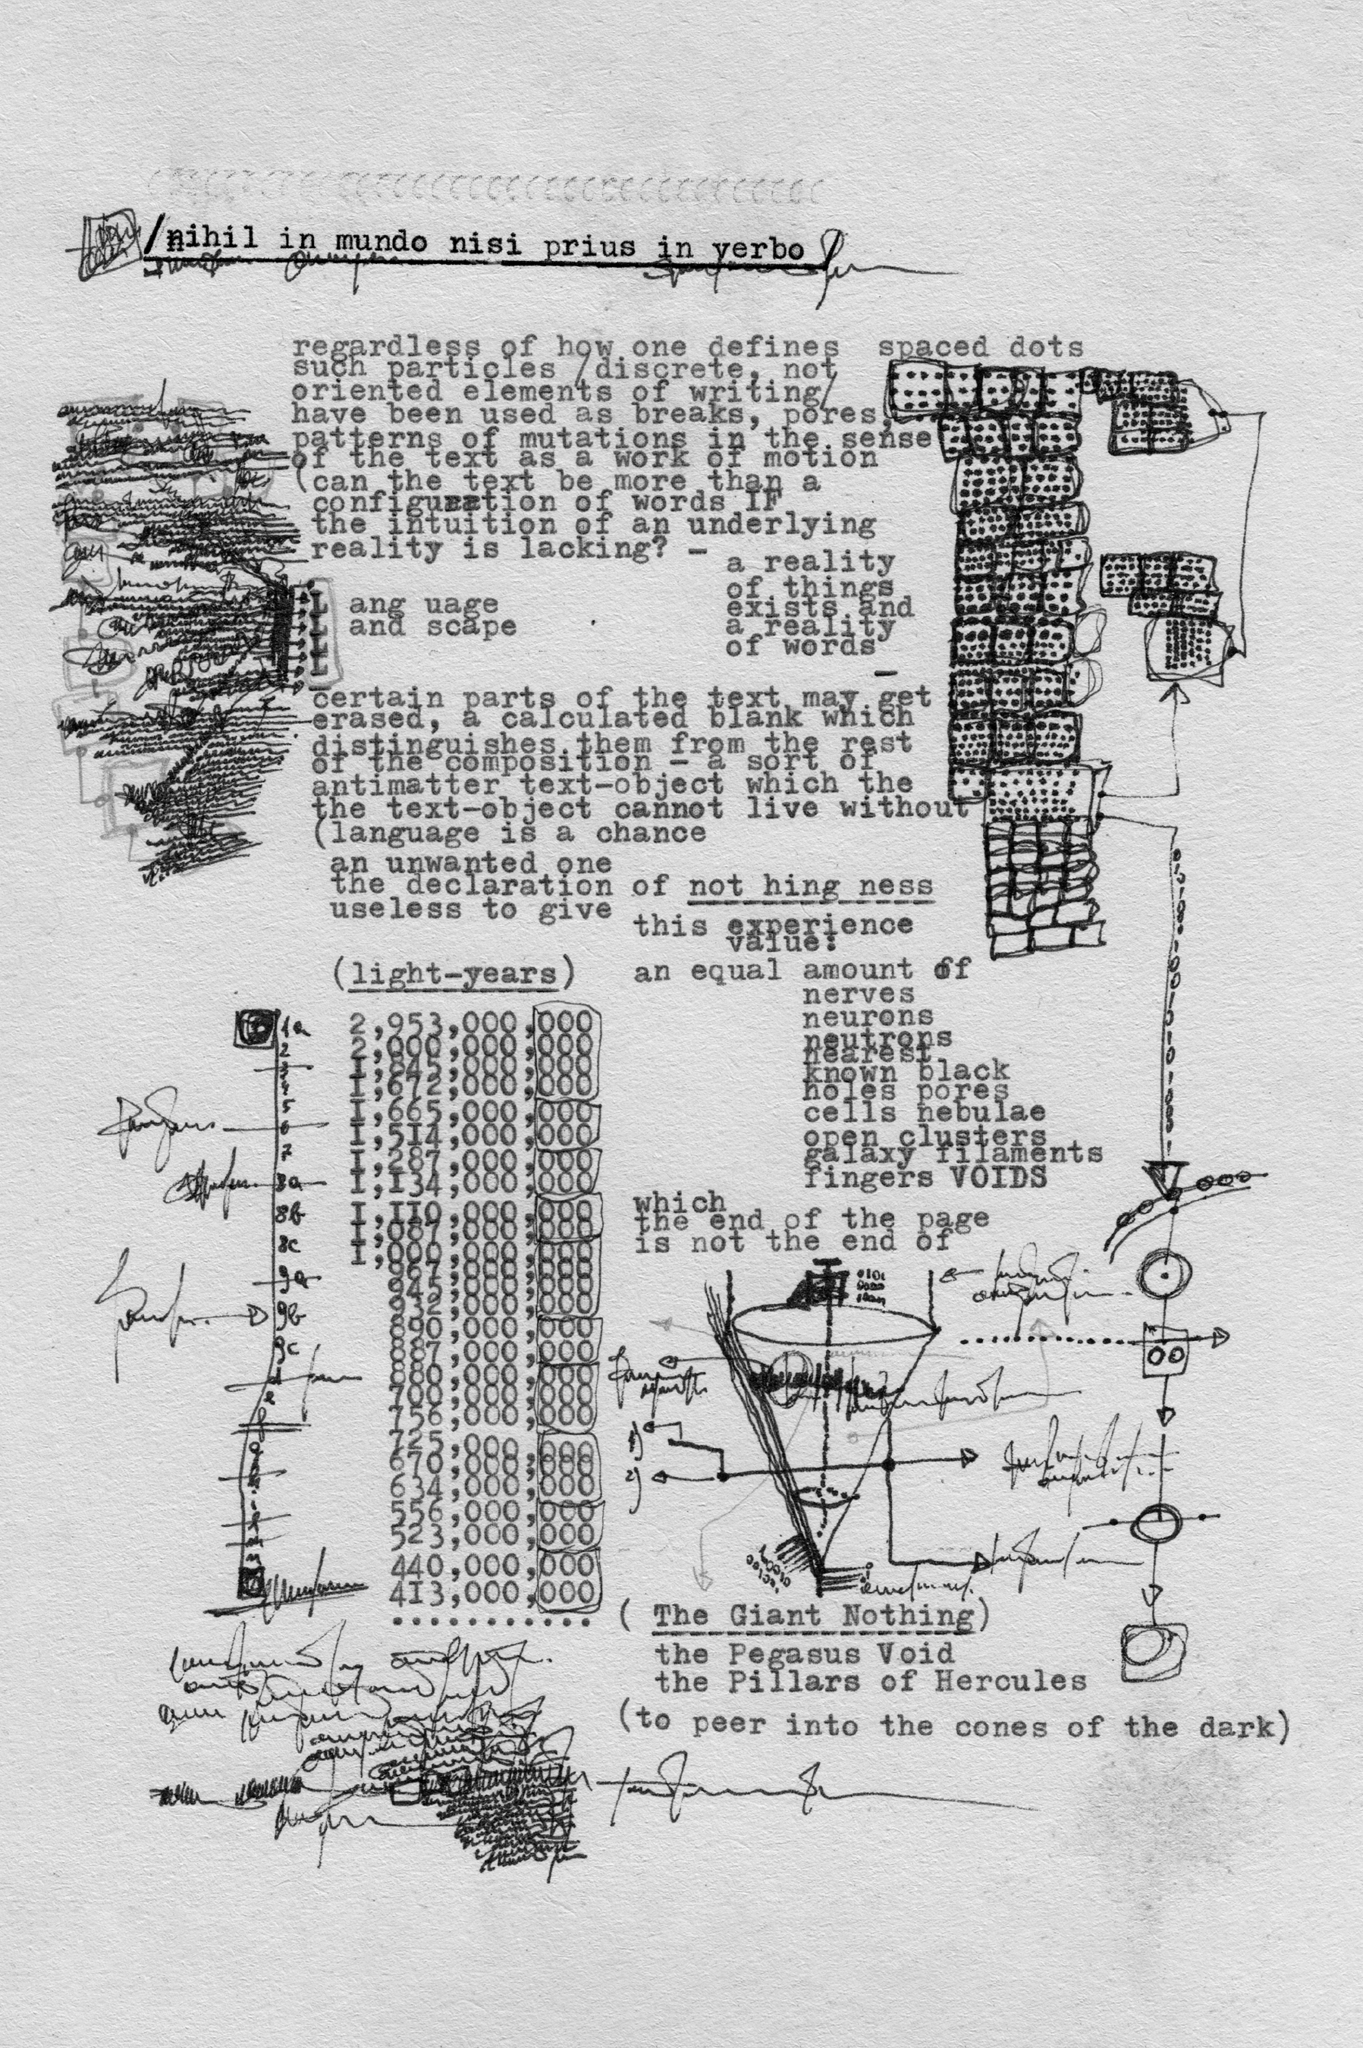 /nihil in mundo nisi prius in verbo/
regardless of how one defines spaced dots
such particles /discrete, not
oriented elements of writing/
have been used as breaks, pores,
patterns of mutations in the sense
of the text as a work of motion
(can the text be more than a
configuration of words IF
the intuition of an underlying
reality is lacking? –
a reality
of things
exists and
a reality
of words
–
L ang uage
L and scape
certain parts of the text may get
erased, a calculated blank which
distinguishes them from the rest
of the composition – a sort of
antimatter text-object which the
the text-object cannot live without
(language is a chance
an unwanted one
the declaration of not hing ness
useless to give
this experience
value:
(light-years)
an equal amount of
nerves
neurons
neutrons
nearest
known black
holes pores
cells nebulae
open clusters
galaxy filaments
fingers VOIDS
which
the end of the page
is not the end of
1a 2,953,000,000
2 2,000,000,000
3 1,845,000,000
4 1,672,000,000
5 1,665,000,000
6 1,514,000,000
7 1,287,000,000
8a 1,134,000,000
8b 1,110,000,000
1,087,000,000
8c 1,000,000,000
967,000,000
9a 945,000,000
932,000,000
9b 890,000,000
9c 887,000,000
d 880,000,000
e 700,000,000
756,000,000
f 725,000,000
670,000,000
634,000,000
556,000,000
523,000,000
440,000,000
413,000,000
...........
1)
2)
(The Giant Nothing)
the Pegasus Void
the Pillars of Hercules
(to peer into the cones of the dark)